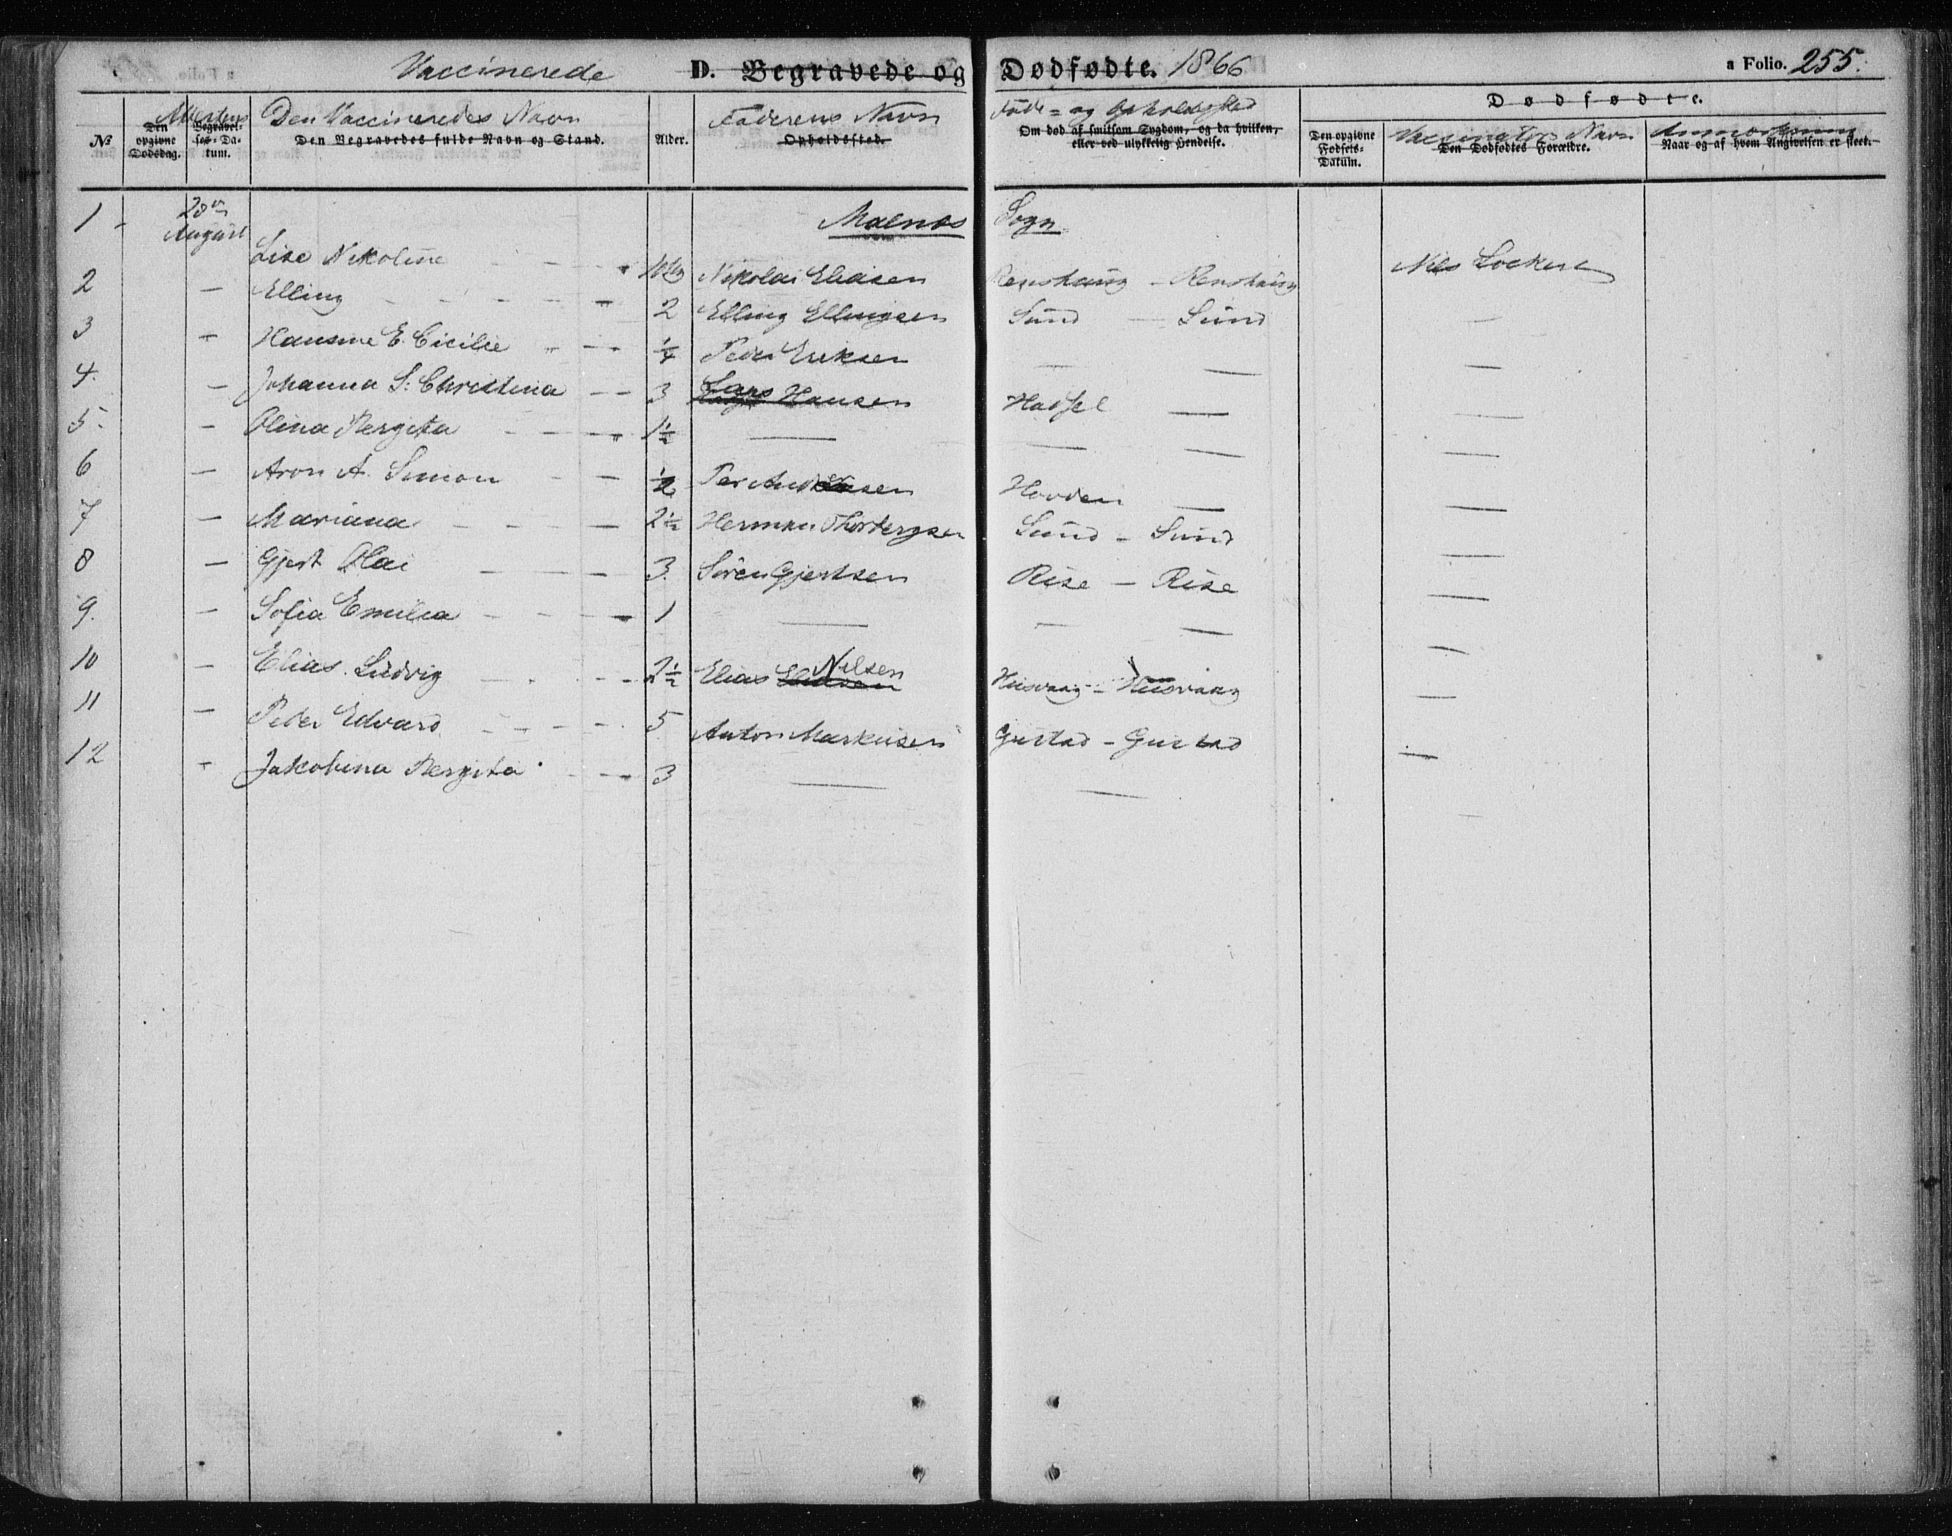 Vaccinerede D. Begravede og Dødfødte. 1866 a Folio. 255.
No Den opgivne Dødsdag. Begravelses-Datum. Den Begravedes fulde Navn og Stand. Alder. Opholdssted. Om død af smitsom Sygdom, og da hvilken, eller ved ulykkelig Hændelse. Dødfødte. Den opgivne Fødsels-Datum. Den Dødfødtes Forældre. Naar og af hvem Angivelsen er skeet.
Den Vaccineredes Navn Faderens Navn Føde- og Opholdssted Navn
1 28de August Malnes Sogn
Lise Nikoline Nikolai Eliasen Renshaug - Renshaug Nils Lockert
2 — Elling 2 Elling Ellingsen Sund — Sund —
3 — Hansine E. Cicilie 1/4 Peder Eriksen — — —
4. — Johanna S: Christina 3 Lars Hansen Hadsel — —
5. — Olina Bergita 1½ — — — —
6 — Aron A. Simon ½ Per Hovden — —
7 — Mariana 2½ Herman Thorbergsen Sund - Sund —
8 — Gjert Olai 3. Sören Gjertsen Rise — Rise —
9. — Sofia Emilia 1 — — — —
10 — Elias Ludvig 2½ Elias Nilsen Husvaag - Husvaag —
11 — Peder Edvard 5 Anton Markusen Gustad - Gustad —
12 - Jakobina Bergita 3 — — —